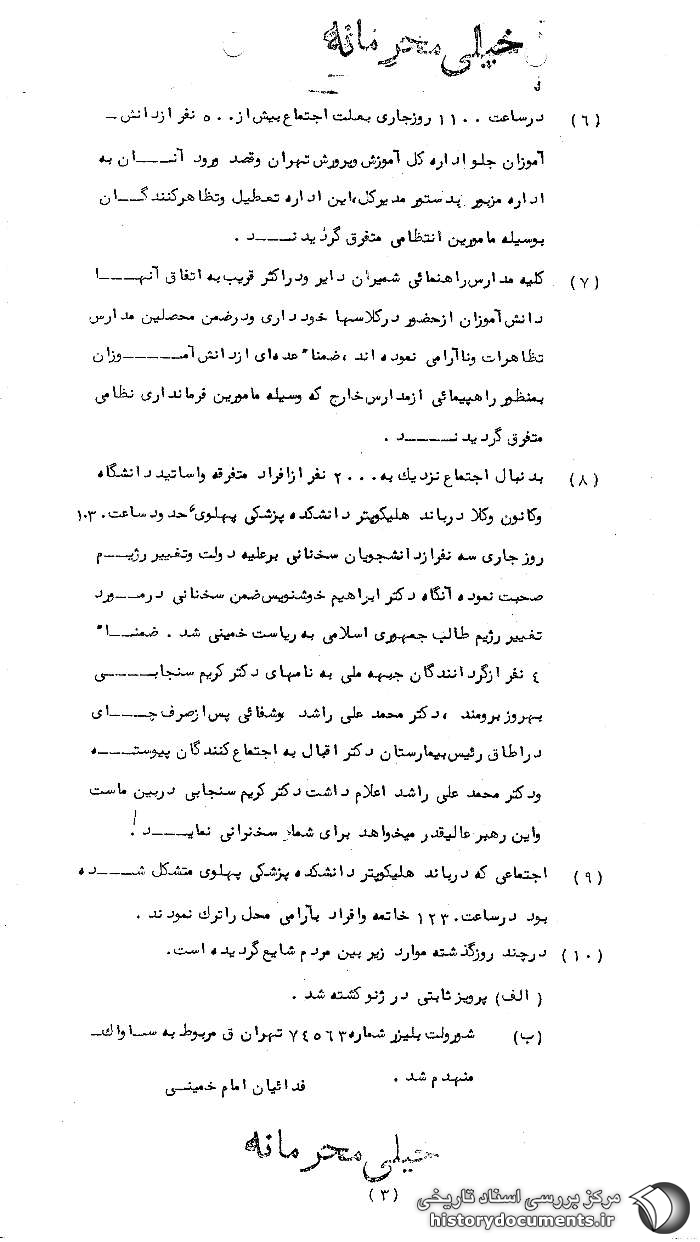 خیلی محرمانه
(٦) درساعت ۱۱۰۰ روزجاری بعلت اجتماع بیش از ۵۰۰ نفر ازدانش ـ
آموزان جلو اداره کل آموزش وپرورش تهران وقصد ورود آنـــان به
اداره مزبور بدستور مدیرکل،این اداره تعطیل وتظاهرکنندگـــان
بوسیله مامورین انتظامی متفرق گردیدنـــد .
(۷) کلیه مدارس راهنمائی شمیران دایر ودراکثر قریب به اتفاق آنهـــا
دانش آموزان ازحضور درکلاسها خودداری ودرضمن محصلین مدارس
تظاهرات وناآرامی نموده اند ،ضمنا" عده‌ای ازدانش آمـــوزان
بمنظور راهپیمائی ازمدارس خارج که وسیله مامورین فرمانداری نظامی
متفرق گردیدنـــد .
(۸) بدنبال اجتماع نزدیك به ۲۰۰۰ نفر ازافراد متفرقه واساتید دانشگاه
وکانون وکلا درباند هلیکوپتر دانشکده پزشکی پهلوی حدودساعت ۱۰۳۰
روزجاری سه نفرازدانشجویان سخنانی برعلیه دولت وتغییر رژیـــم
صحبت نموده آنگاه دکتر ابراهیم خوشنویس ضمن سخنانی درمـــورد
تغییر رژیم طالب جمهوری اسلامی به ریاست خمینی شد . ضمنـــا"
٤ نفر ازگردانندگان جبهه ملی به نامهای دکتر کریم سنجابـــی
بهروز برومند ،دکتر محمد علی راشد وشفائی پس ازصرف چـــای
دراطاق رئیس بیمارستان دکتر اقبال به اجتماع کنندگان پیوستـــه
ودکتر محمد علی راشد اعلام داشت دکتر کریم سنجابی دربین ماست
واین رهبر عالیقدر میخواهد برای شما سخنرانی نمایـــد !
(۹) اجتماعی که درباند هلیکوپتر دانشکده پزشکی پهلوی متشکل شـــده
بود درساعت ۱۲۳۰ خاتمه وافراد بآرامی محل راترك نمودند .
(۱۰) درچند روزگذشته موارد زیر بین مردم شایع گردیده است.
(الف) پرویز ثابتی در ژنو کشته شد .
(ب) شورولت بلیزر شماره ۷٤۵٦۳ تهران ق مربوط به ســاواك
منهدم شد .
فدائیان امام خمینـی
خیلی محرمانه
(۳)
مرکز بررسی اسناد تاریخی
historydocuments.ir